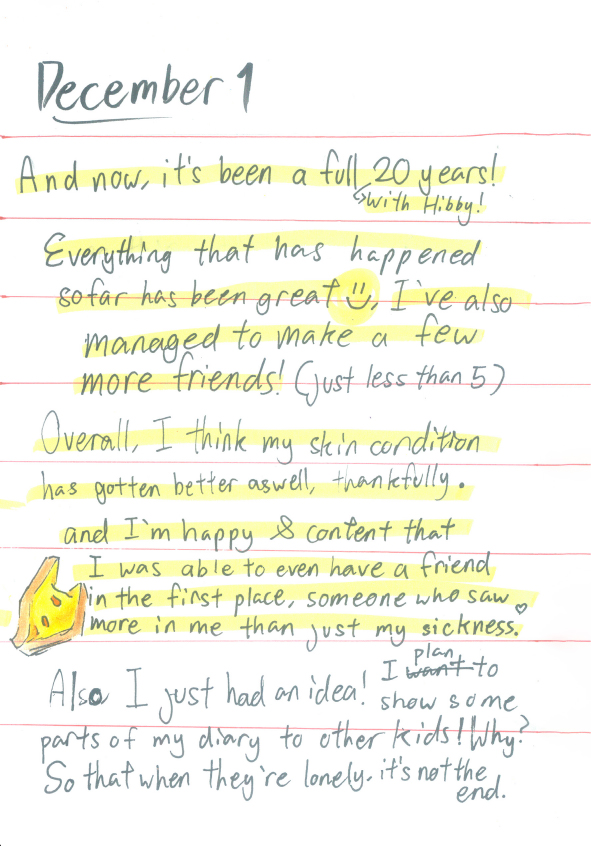 December 1
And now, it's been a full 20 years!
↳with Hibby!
Everything that has happened
so far has been great :), I've also
managed to make a few
more friends! (just less than 5)
Overall, I think my skin condition
has gotten better aswell, thankfully.
and I'm happy & content that
I was able to even have a friend
in the first place, someone who saw
more in me than just my sickness.
Also I just had an idea! I ~~want~~ plan to
show some
parts of my diary to other kids! Why?
So that when they're lonely. it's not the
end.